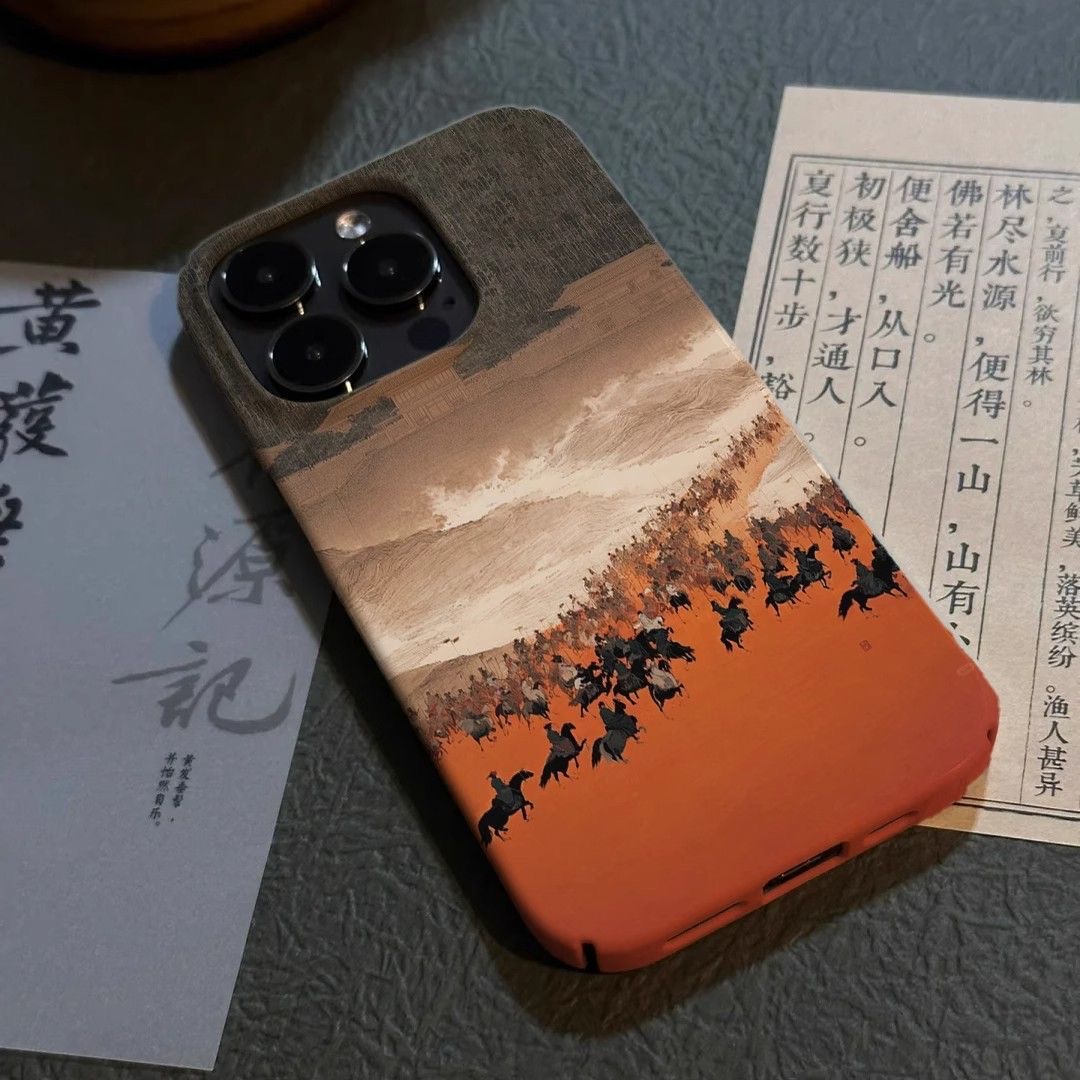 黄發
源
記
黄发垂髫，
并怡然自乐。
芳草鲜美，落英缤纷。渔人甚异
之，夏前行，欲穷其林。
林尽水源，便得一山，山有
佛若有光。
便舍船，从口入。
初极狭，才通人。
夏行数十步，豁